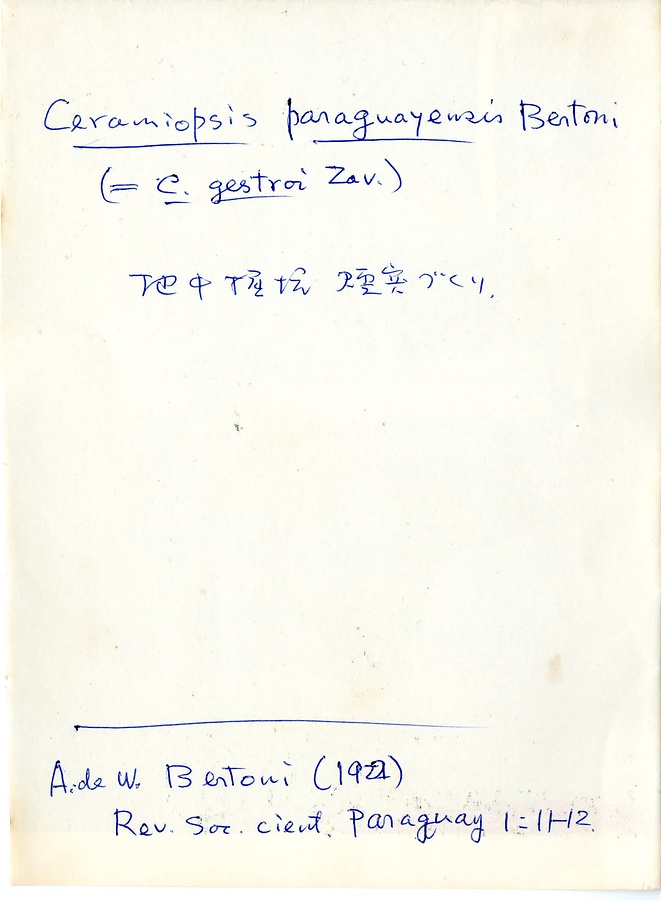 Ceramiopsis paraguayensis Bertoni
(= C. gestroi Zav.)
地中 坑 づくり.
A. de W. Bertoni (1921)
Rev. Soc. cient. Paraguay 1:11-12.